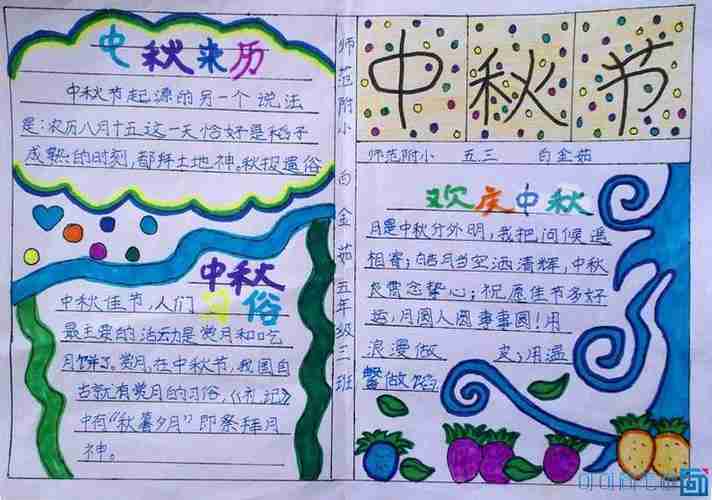 中秋来历
中秋节起源的另一个说法
是:农历八月十五这一天恰好是稻子
成熟的时刻,都拜土地神。秋报遗俗
中秋
习俗
中秋佳节,人们
最主要的活动是赏月和吃
月饼了。赏月,在中秋节,我国自
古就有赏月的习俗,《礼记》
中有“秋暮夕月”即祭拜月
神。
师范附小 白金茹五年级三班
中秋节
师范附小 五三 白金茹
欢庆中秋
月是中秋分外明,我把问候遥
相寄;皓月当空洒清辉,中秋
良宵念挚心;祝愿佳节多好
运,月圆人圆事事圆!用
浪漫做 皮,用温
馨做馅